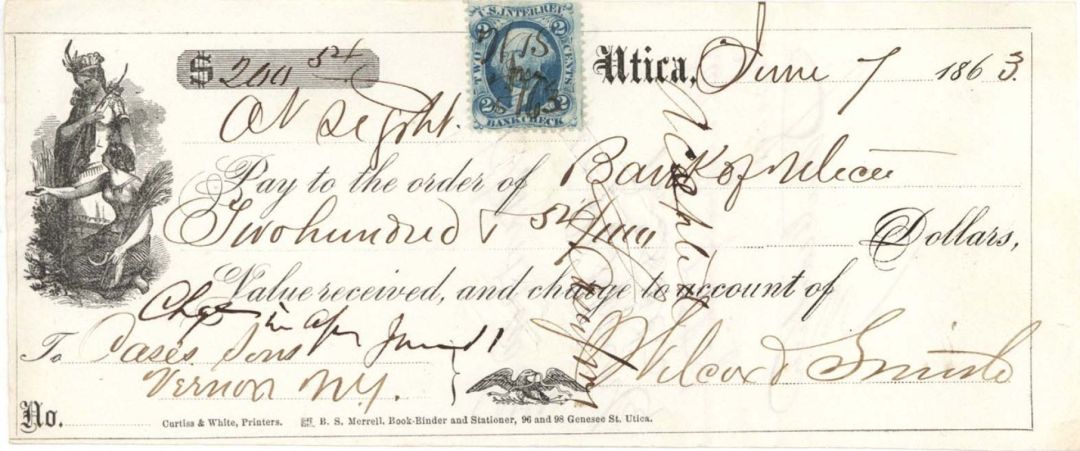 $ 200 54
U.S. INTER. REV.
2 2
TWO CENTS
2 2
BANK CHECK
Utica, June 7 1863.
At Sight.
Pay to the order of Bank of Utica
Two hundred & 54/100 Dollars,
Value received, and charge to account of
Chge in a/c June 11
To Cases Sons
Vernon N.Y.
Wilcox & Smith
Accepted
No.
Curtiss & White, Printers. B. S. Merrell, Book-Binder and Stationer, 96 and 98 Genesee St. Utica.